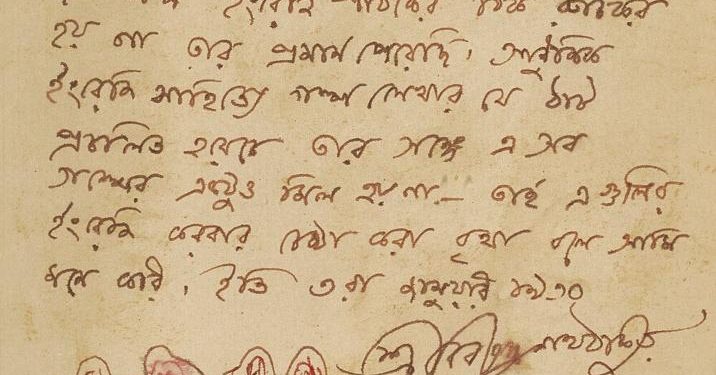 ইংরেজি পাঠকের
হয় না তার প্রমাণ পেয়েছি, আধুনিক
ইংরেজি সাহিত্যে গল্প লেখার যে ঠাট
প্রচলিত হয়েছে তার সঙ্গে এ সব
গল্পের একটুও মিল হয় না— তাই এগুলির
ইংরেজি করবার চেষ্টা করা বৃথা বলে আমি
মনে করি, ইতি ৩রা জানুয়ারি ১৯৩০
শ্রীরবীন্দ্রনাথ ঠাকুর